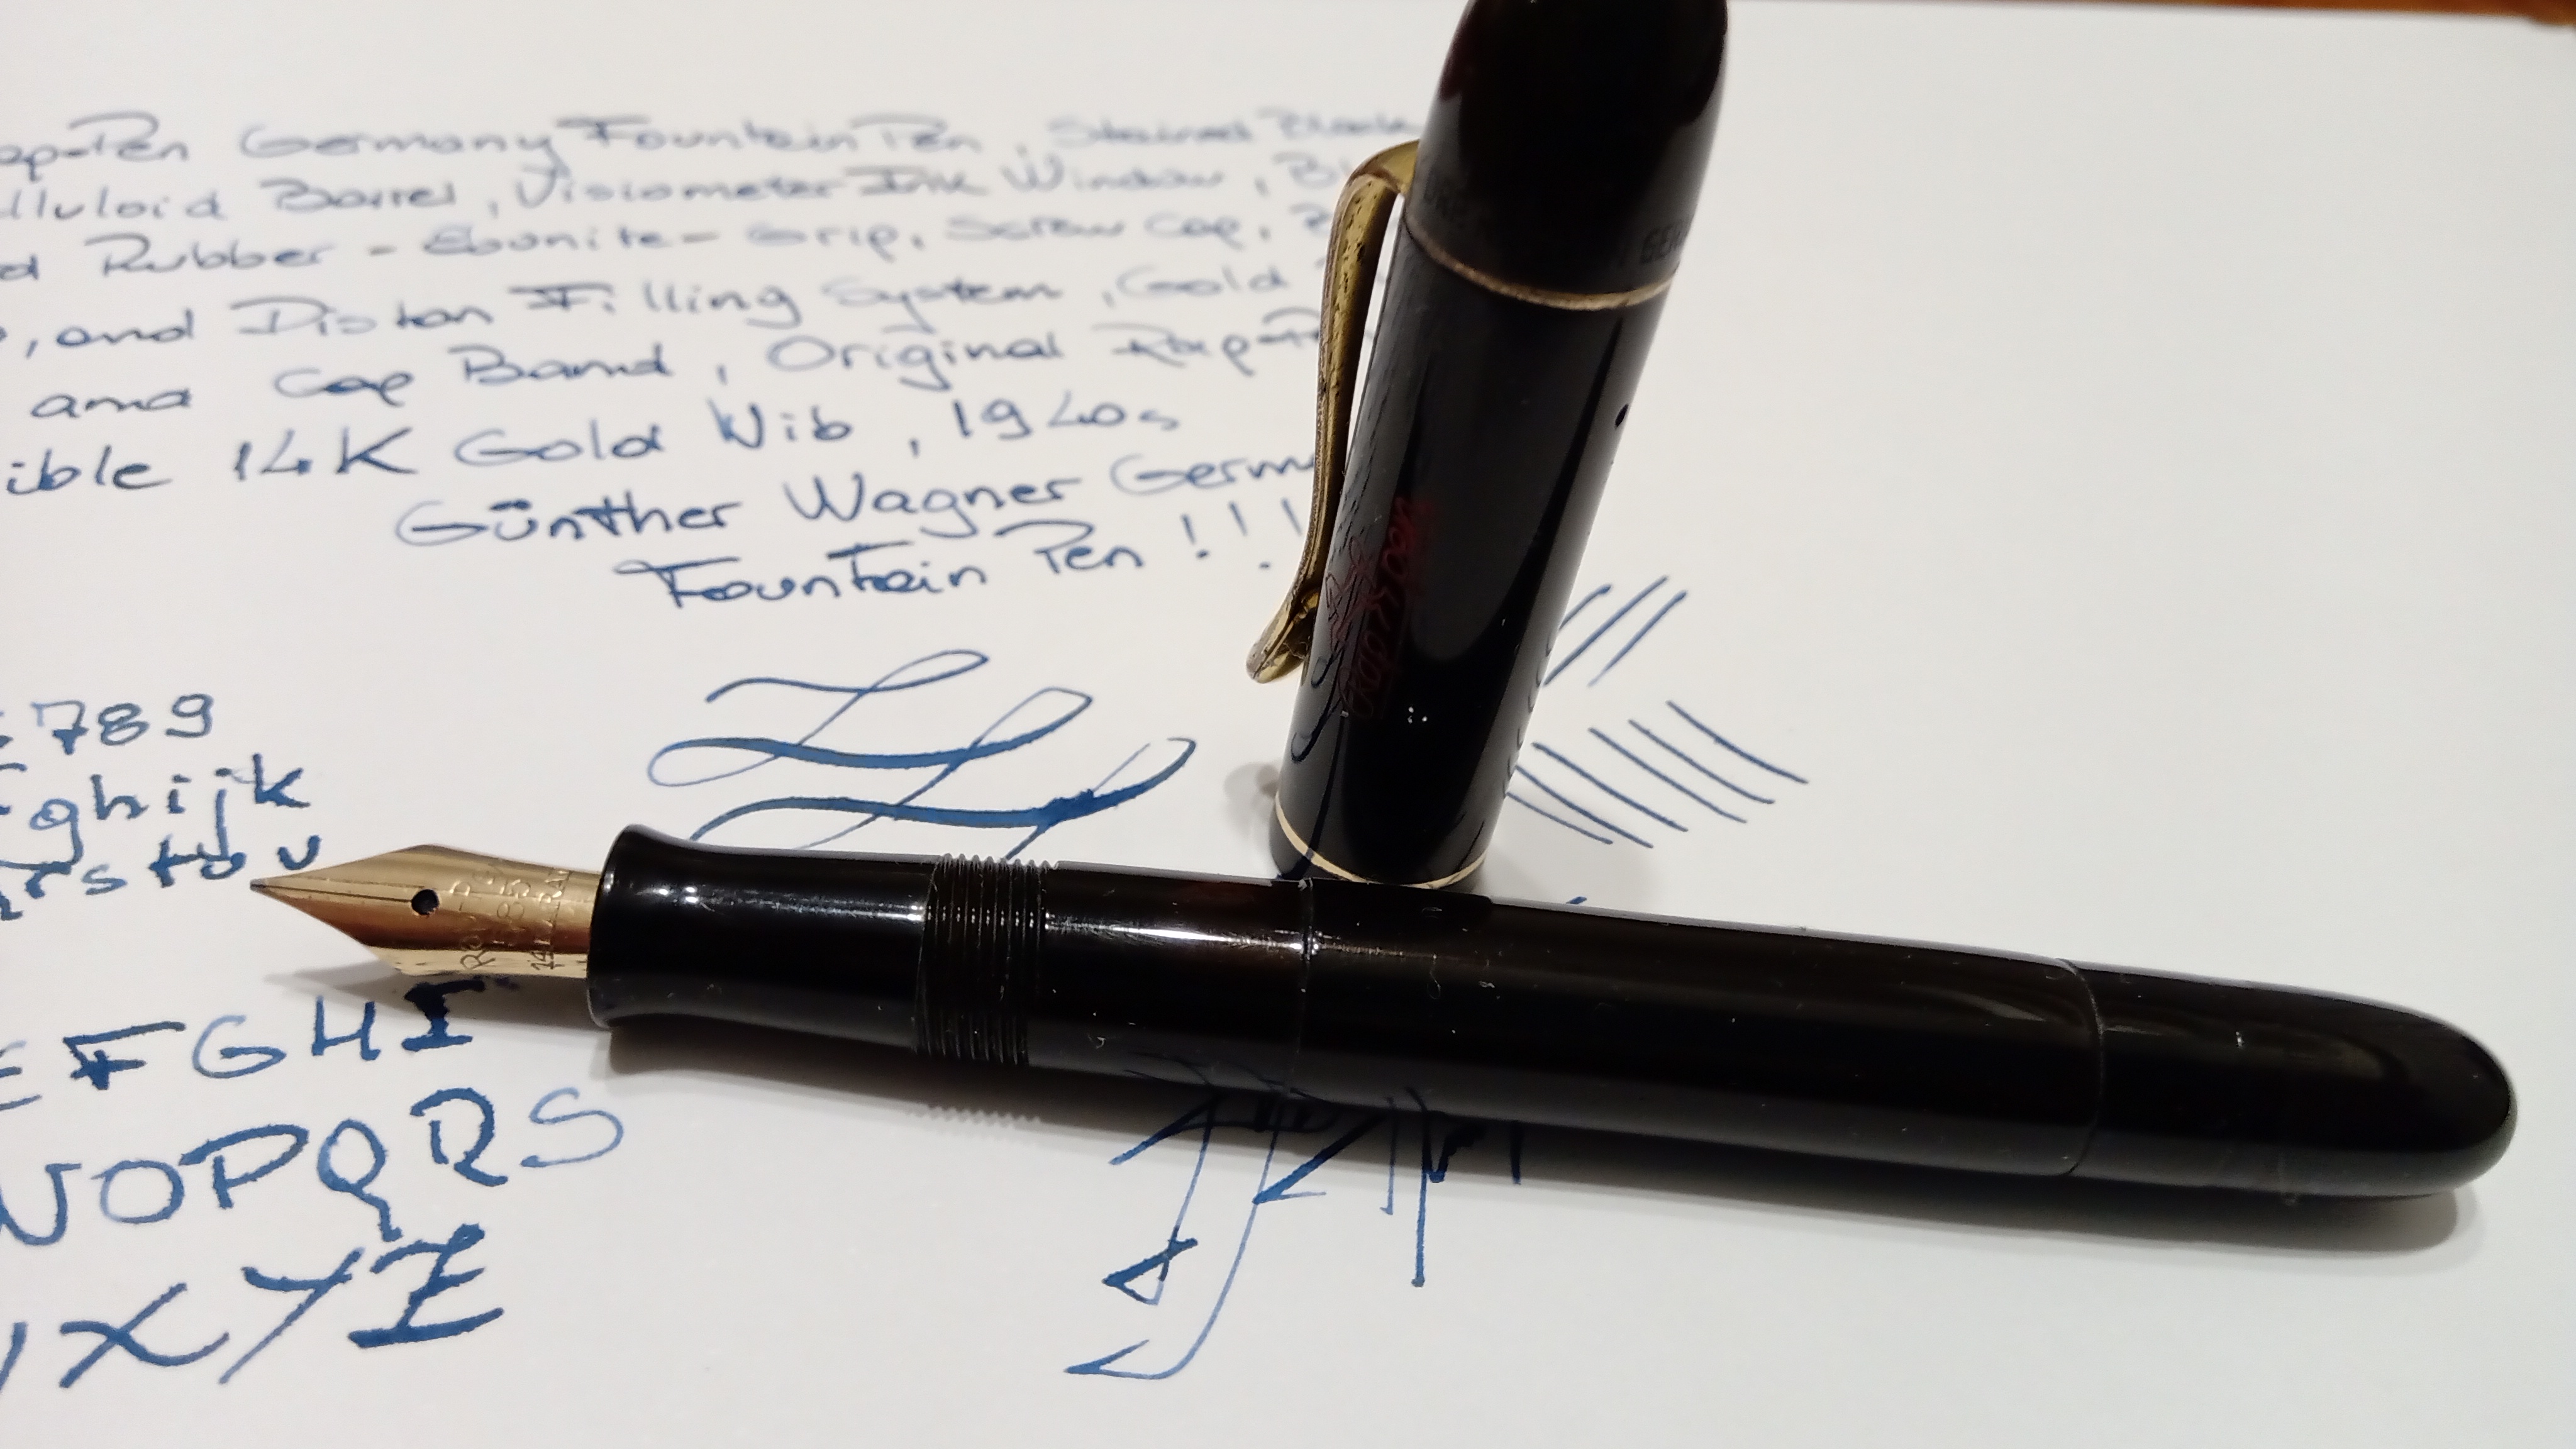 ap-Pen Germany Fountain Pen, Stained Black
lluloid Barrel, Visiometer Ink Window,
d Rubber - Ebonite - Grip, Screw Cap,
, and Piston Filling System, Gold
and Cap Band, Original Rap-Pe
ible 14K Gold Nib, 1940s
Günther Wagner Germ
Fountain Pen !!!
789
ghijk
rstuv
EFGHI
NOPQRS
XYZ
GER
585
14